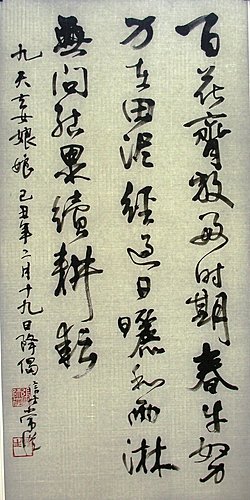 百花齊放好时期春牛努
力在田泥經過日曬和雨淋
無问结果續耕耘
九天玄女娘娘 己丑年二月十九日降偈